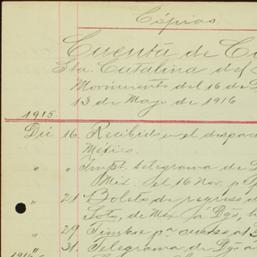 Cópias
Cuenta de
Sta. Catalina del
Movimiento del 16 de
13 de Mayo de 1916
1915
Dic 16. Recibido en el despac
México.
" " Impt. telegrama de
Mex. del 16 Nov.
" 21 Boleto de regreso de
Soto, de Mex a Dgo,
" 29 Timbre pa
" 31. Telegrama de Dgo
1916